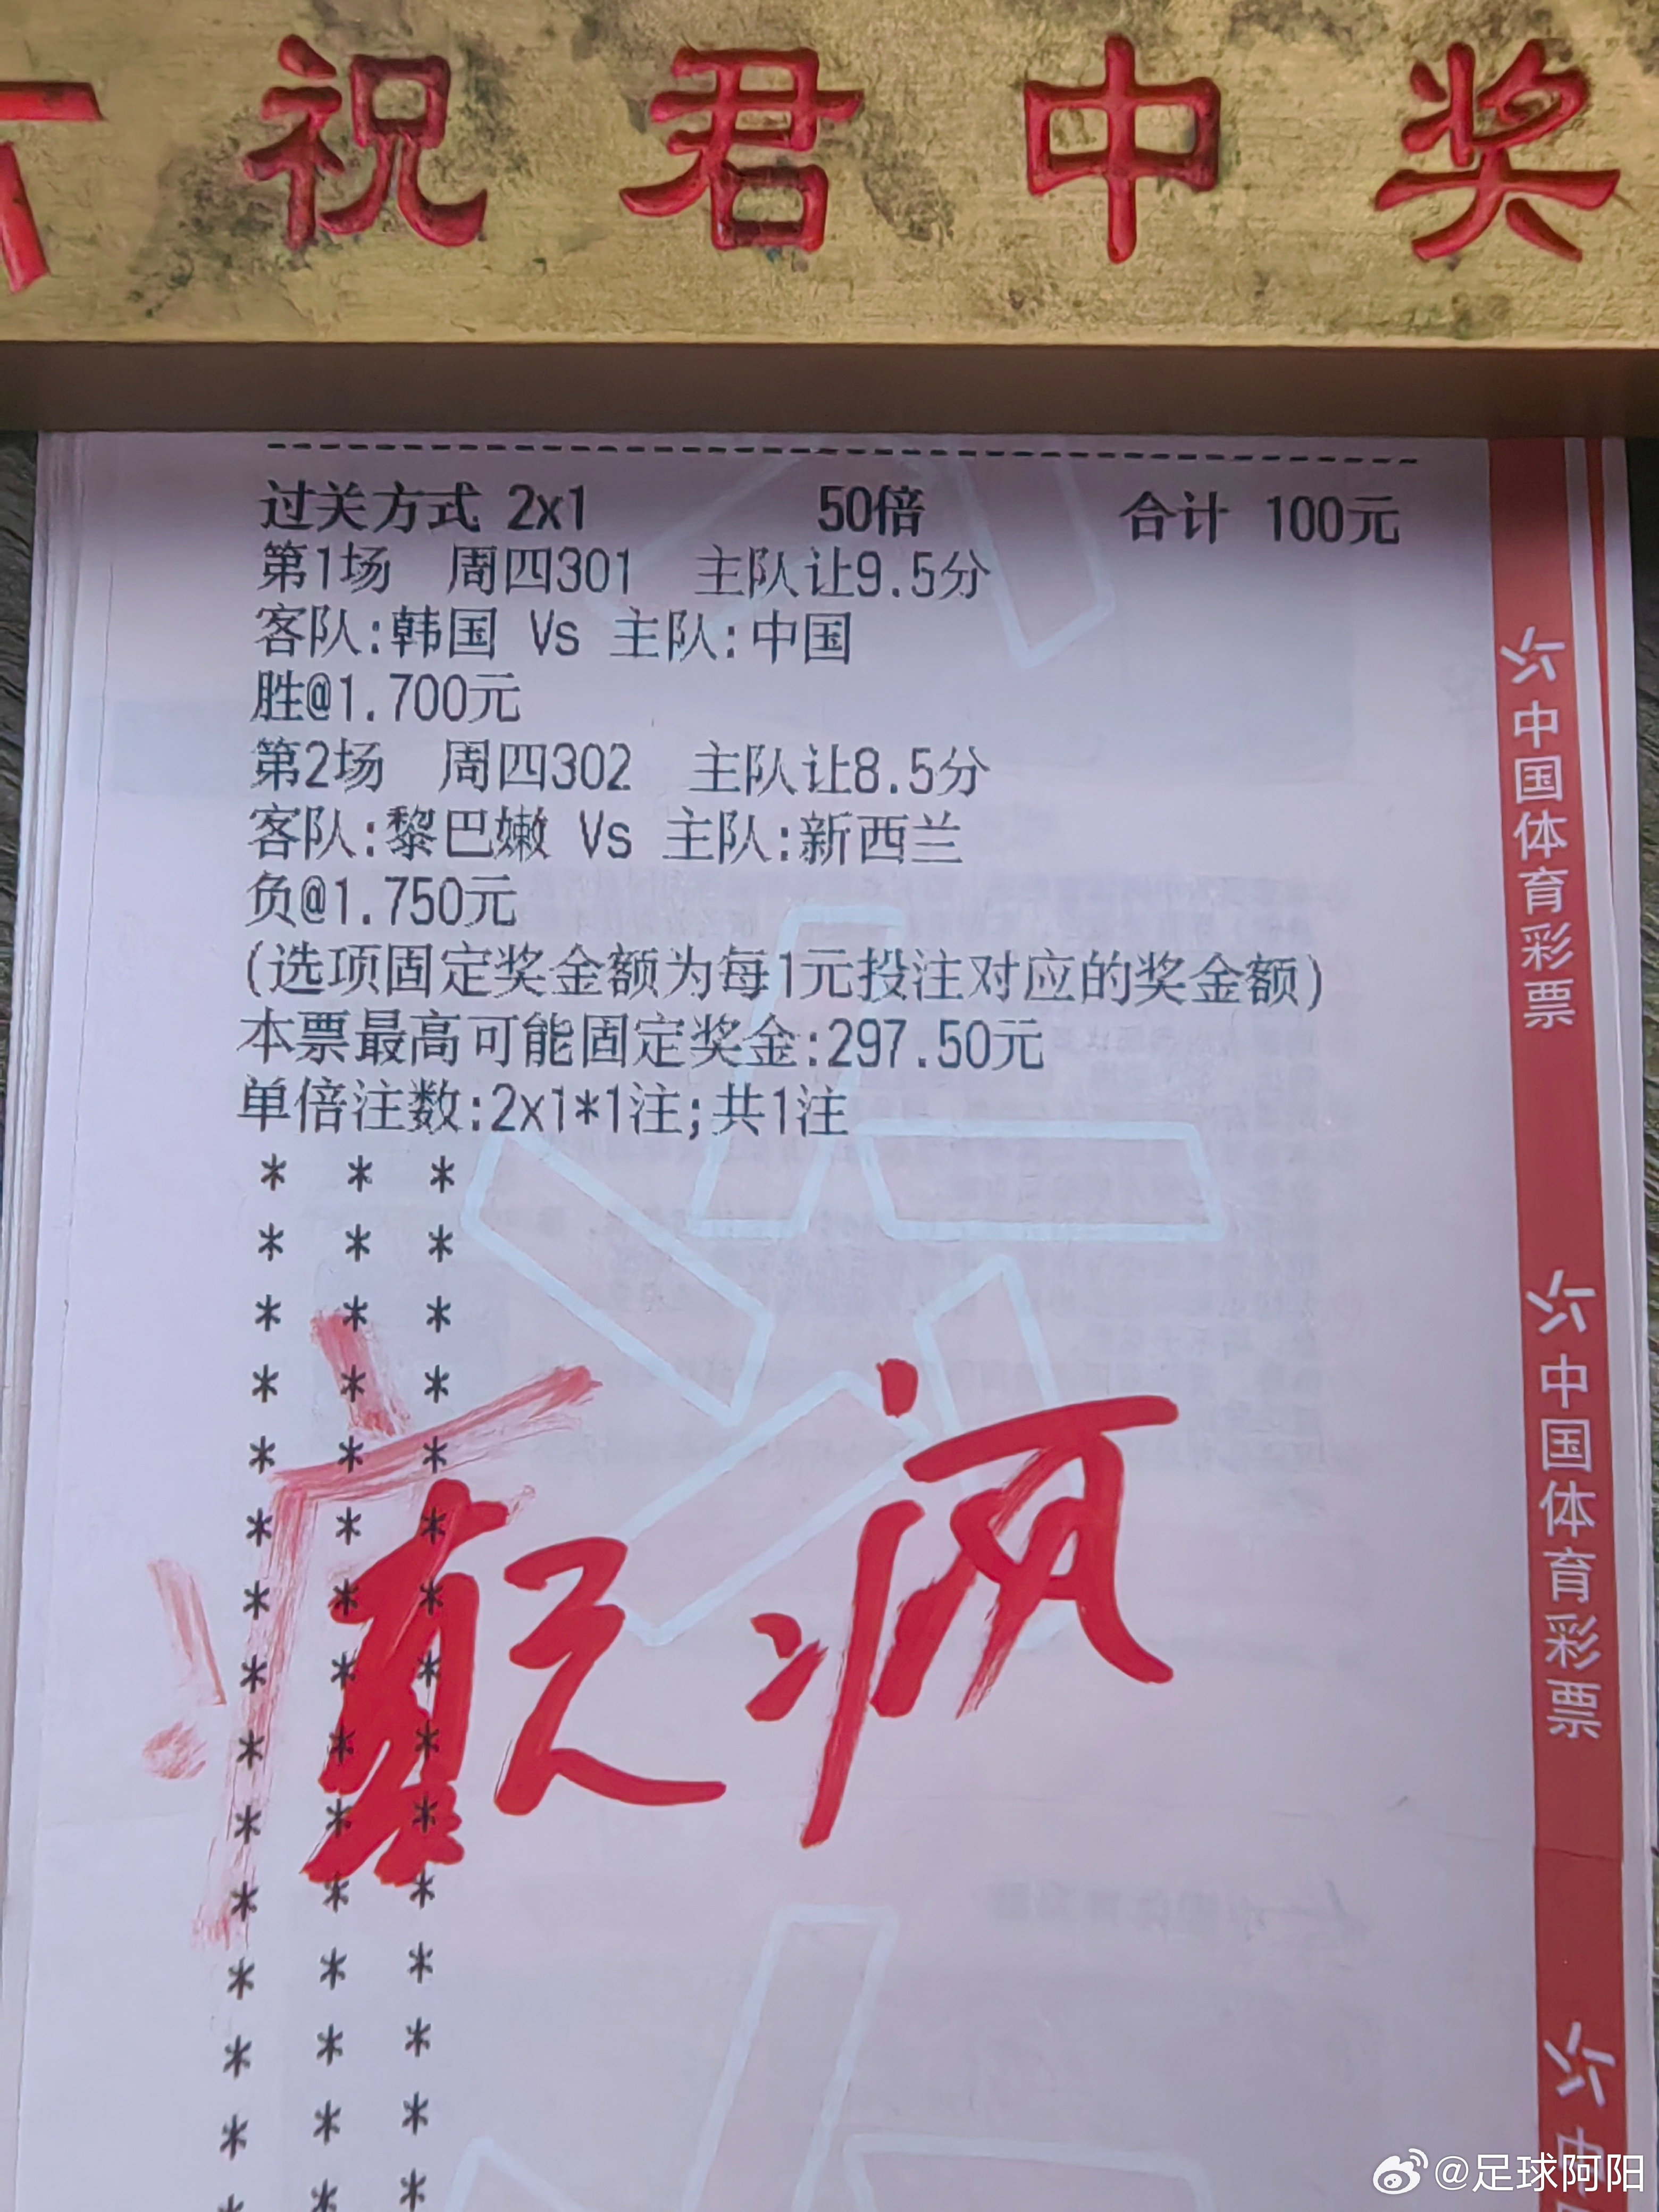 祝君中奖
过关方式 2x1 50倍 合计 100元
第1场 周四301 主队让9.5分
客队:韩国 Vs 主队:中国
胜@1.700元
第2场 周四302 主队让8.5分
客队:黎巴嫩 Vs 主队:新西兰
负@1.750元
(选项固定奖金额为每1元投注对应的奖金额)
本票最高可能固定奖金:297.50元
单倍注数:2x1*1注;共1注
* * *
* * *
* * *
* * *
* * *
* * *
* * *
* * *
* * *
* * *
* * *
* * *
* * *
* * *
* * *
中国体育彩票
中国体育彩票
中
@足球阿阳